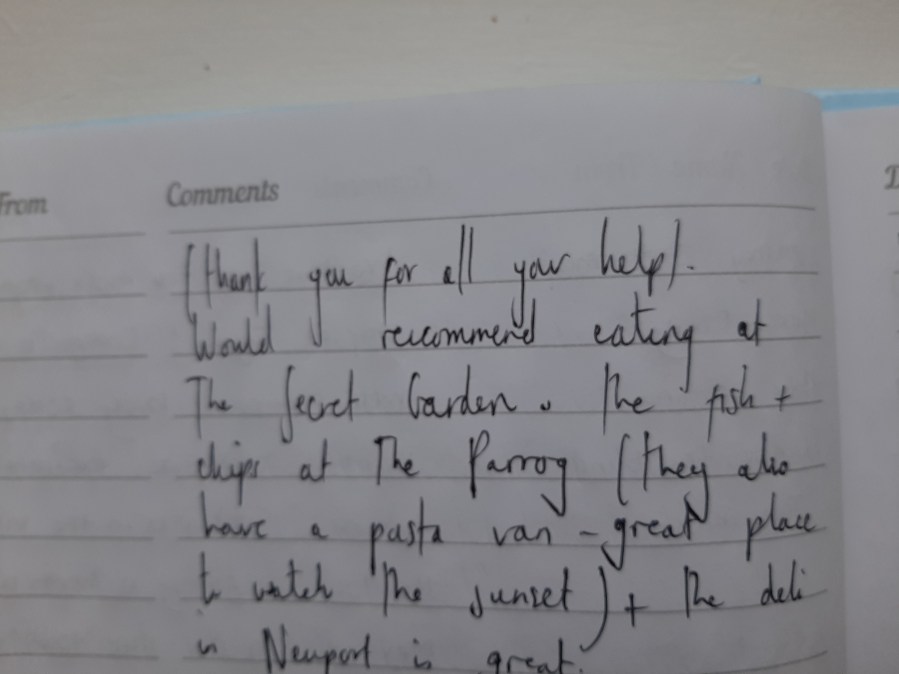 From
Comments
(thank you for all your help).
Would recommend eating at
The Secret Garden. The fish +
chips at The Parrog (they also
have a pasta van - great place
to watch the sunset) + the deli
in Newport is great.